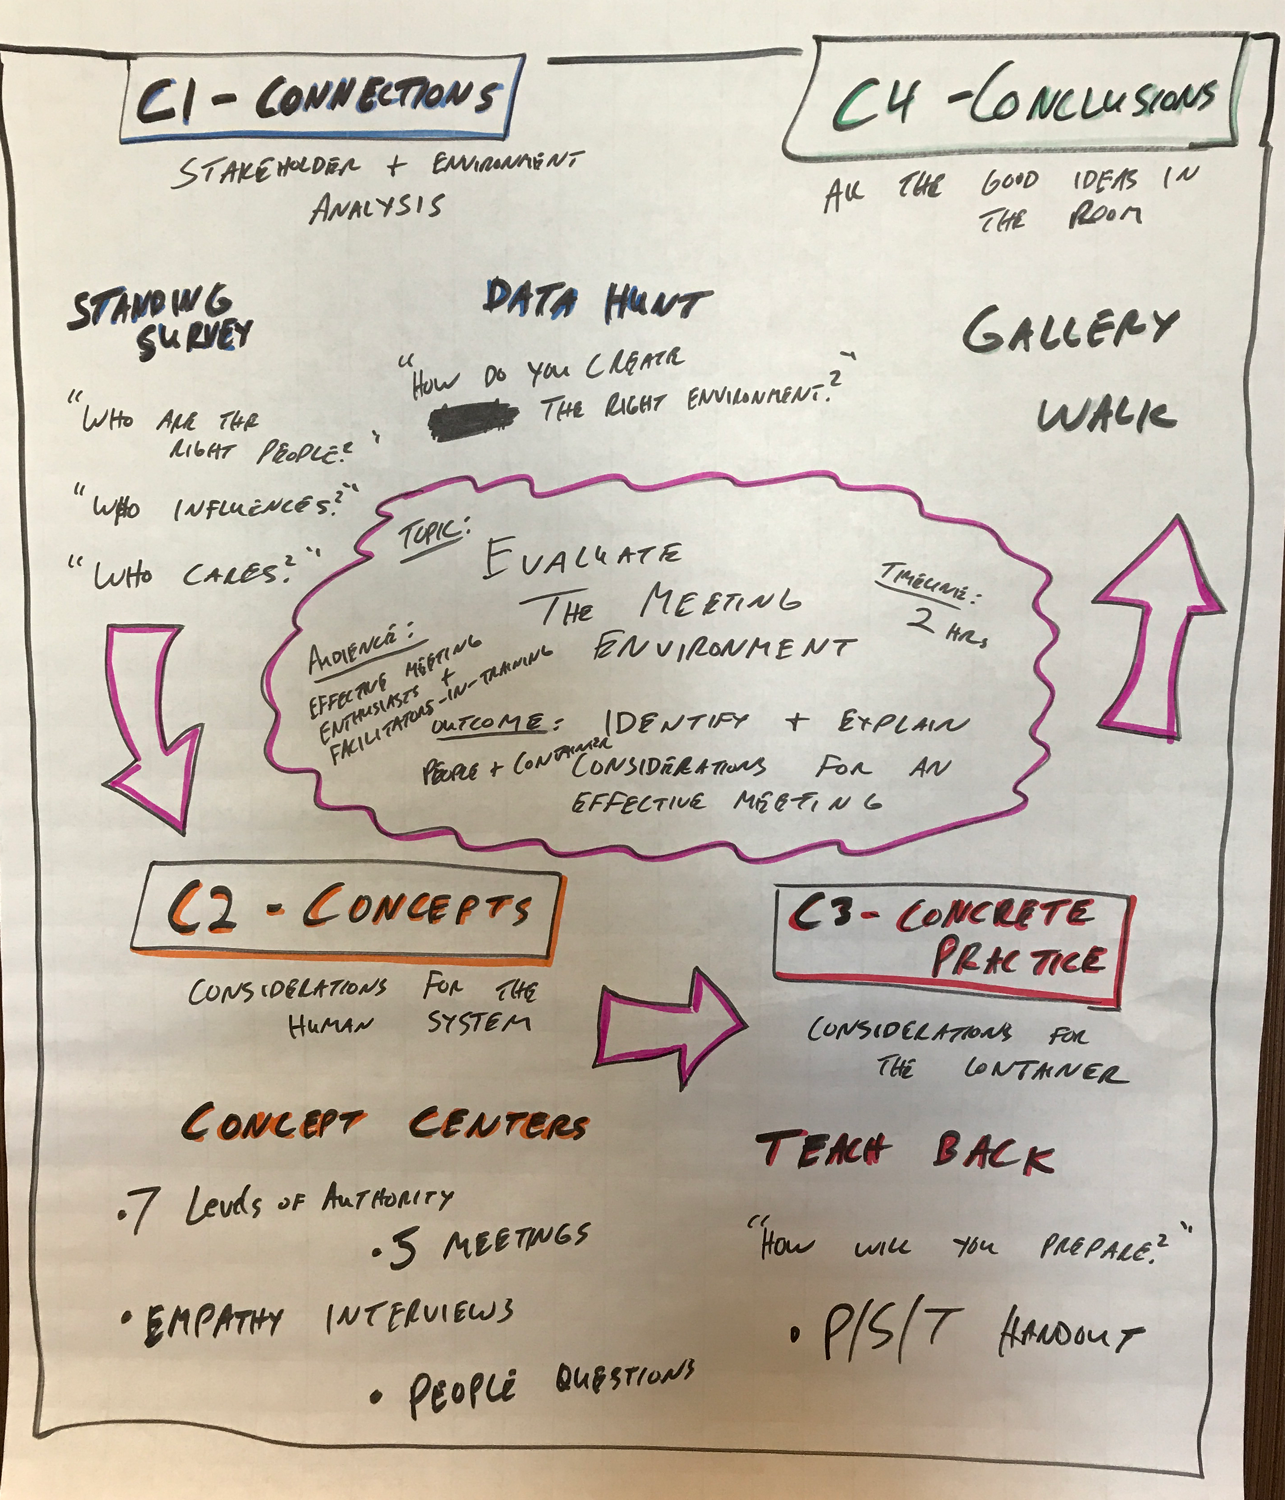 C1 - CONNECTIONS
STAKEHOLDER + ENVIRONMENT
ANALYSIS
STANDING
SURVEY
"WHO ARE THE
RIGHT PEOPLE?"
"WHO INFLUENCES?"
"WHO CARES?"
DATA HUNT
"HOW DO YOU CREATE
THE RIGHT ENVIRONMENT?"
C4 - CONCLUSIONS
ALL THE GOOD IDEAS IN
THE ROOM
GALLERY
WALK
TOPIC:
EVALUATE
THE MEETING
ENVIRONMENT
TIMELINE:
2 HRS
AUDIENCE:
EFFECTIVE MEETING
ENTHUSIASTS +
FACILITATORS-IN-TRAINING
OUTCOME: IDENTIFY + EXPLAIN
PEOPLE + CONTAINER
CONSIDERATIONS FOR AN
EFFECTIVE MEETING
C2 - CONCEPTS
CONSIDERATIONS FOR THE
HUMAN SYSTEM
CONCEPT CENTERS
• 7 Levels OF AUTHORITY
• 5 MEETINGS
• EMPATHY INTERVIEWS
• PEOPLE QUESTIONS
C3 - CONCRETE
PRACTICE
CONSIDERATIONS FOR
THE CONTAINER
TEACH BACK
"HOW WILL YOU PREPARE?"
• P/S/T HANDOUT